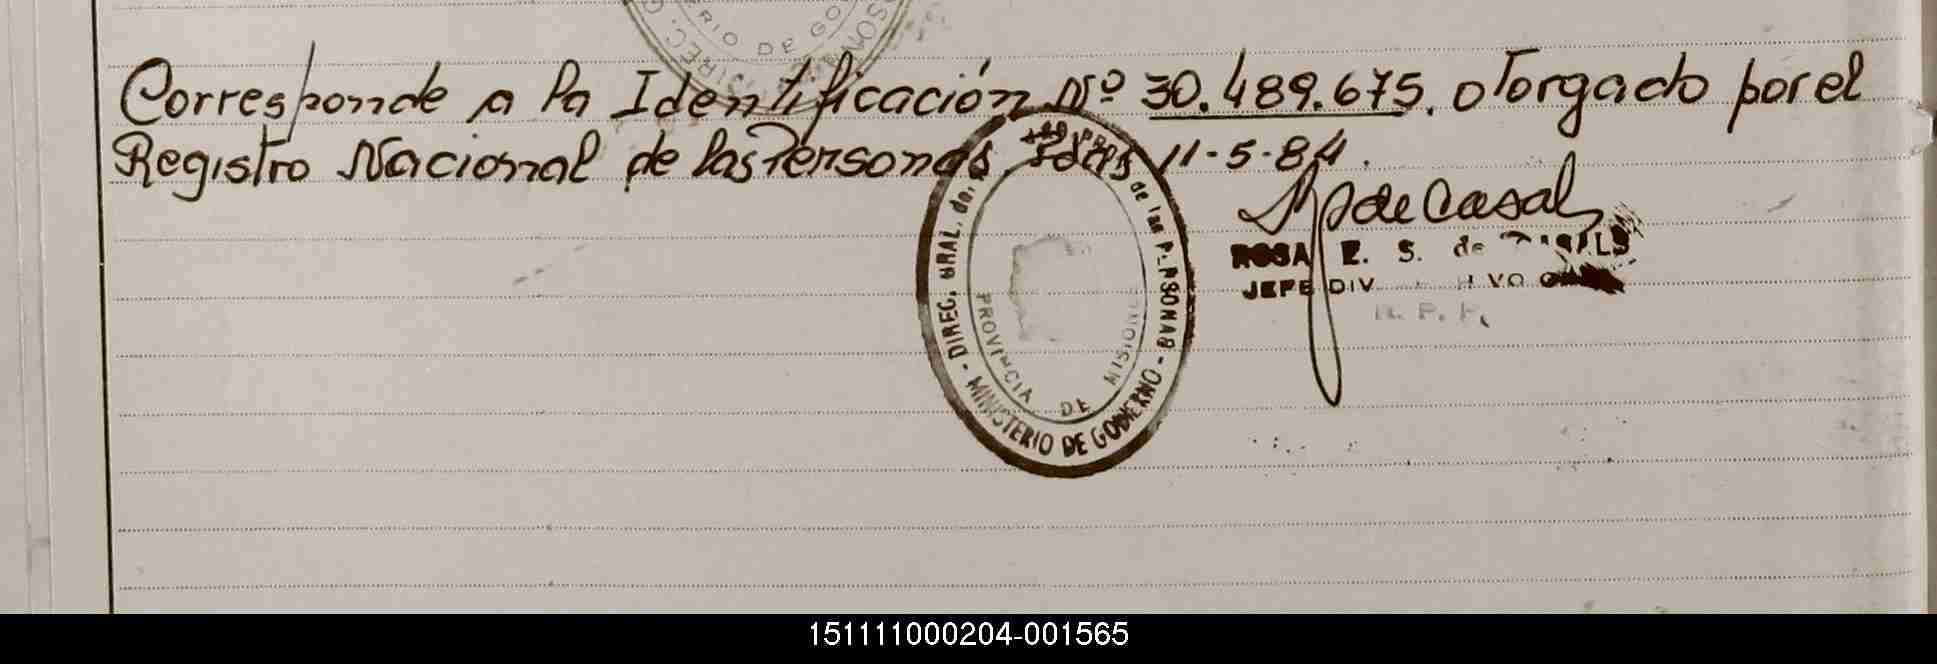 RIO DE GO
DIREC. G
Corresponde a la Identificación Nº 30.489.675. otorgado por el
Registro Nacional de las Personas. Pdas 11-5-84.
de Casal
DIREC. GRAL. de las PERSONAS - MINISTERIO DE GOBIERNO -
PROVINCIA DE MISIONES
ROSA E. S. de
JEFE DIV
151111000204-001565